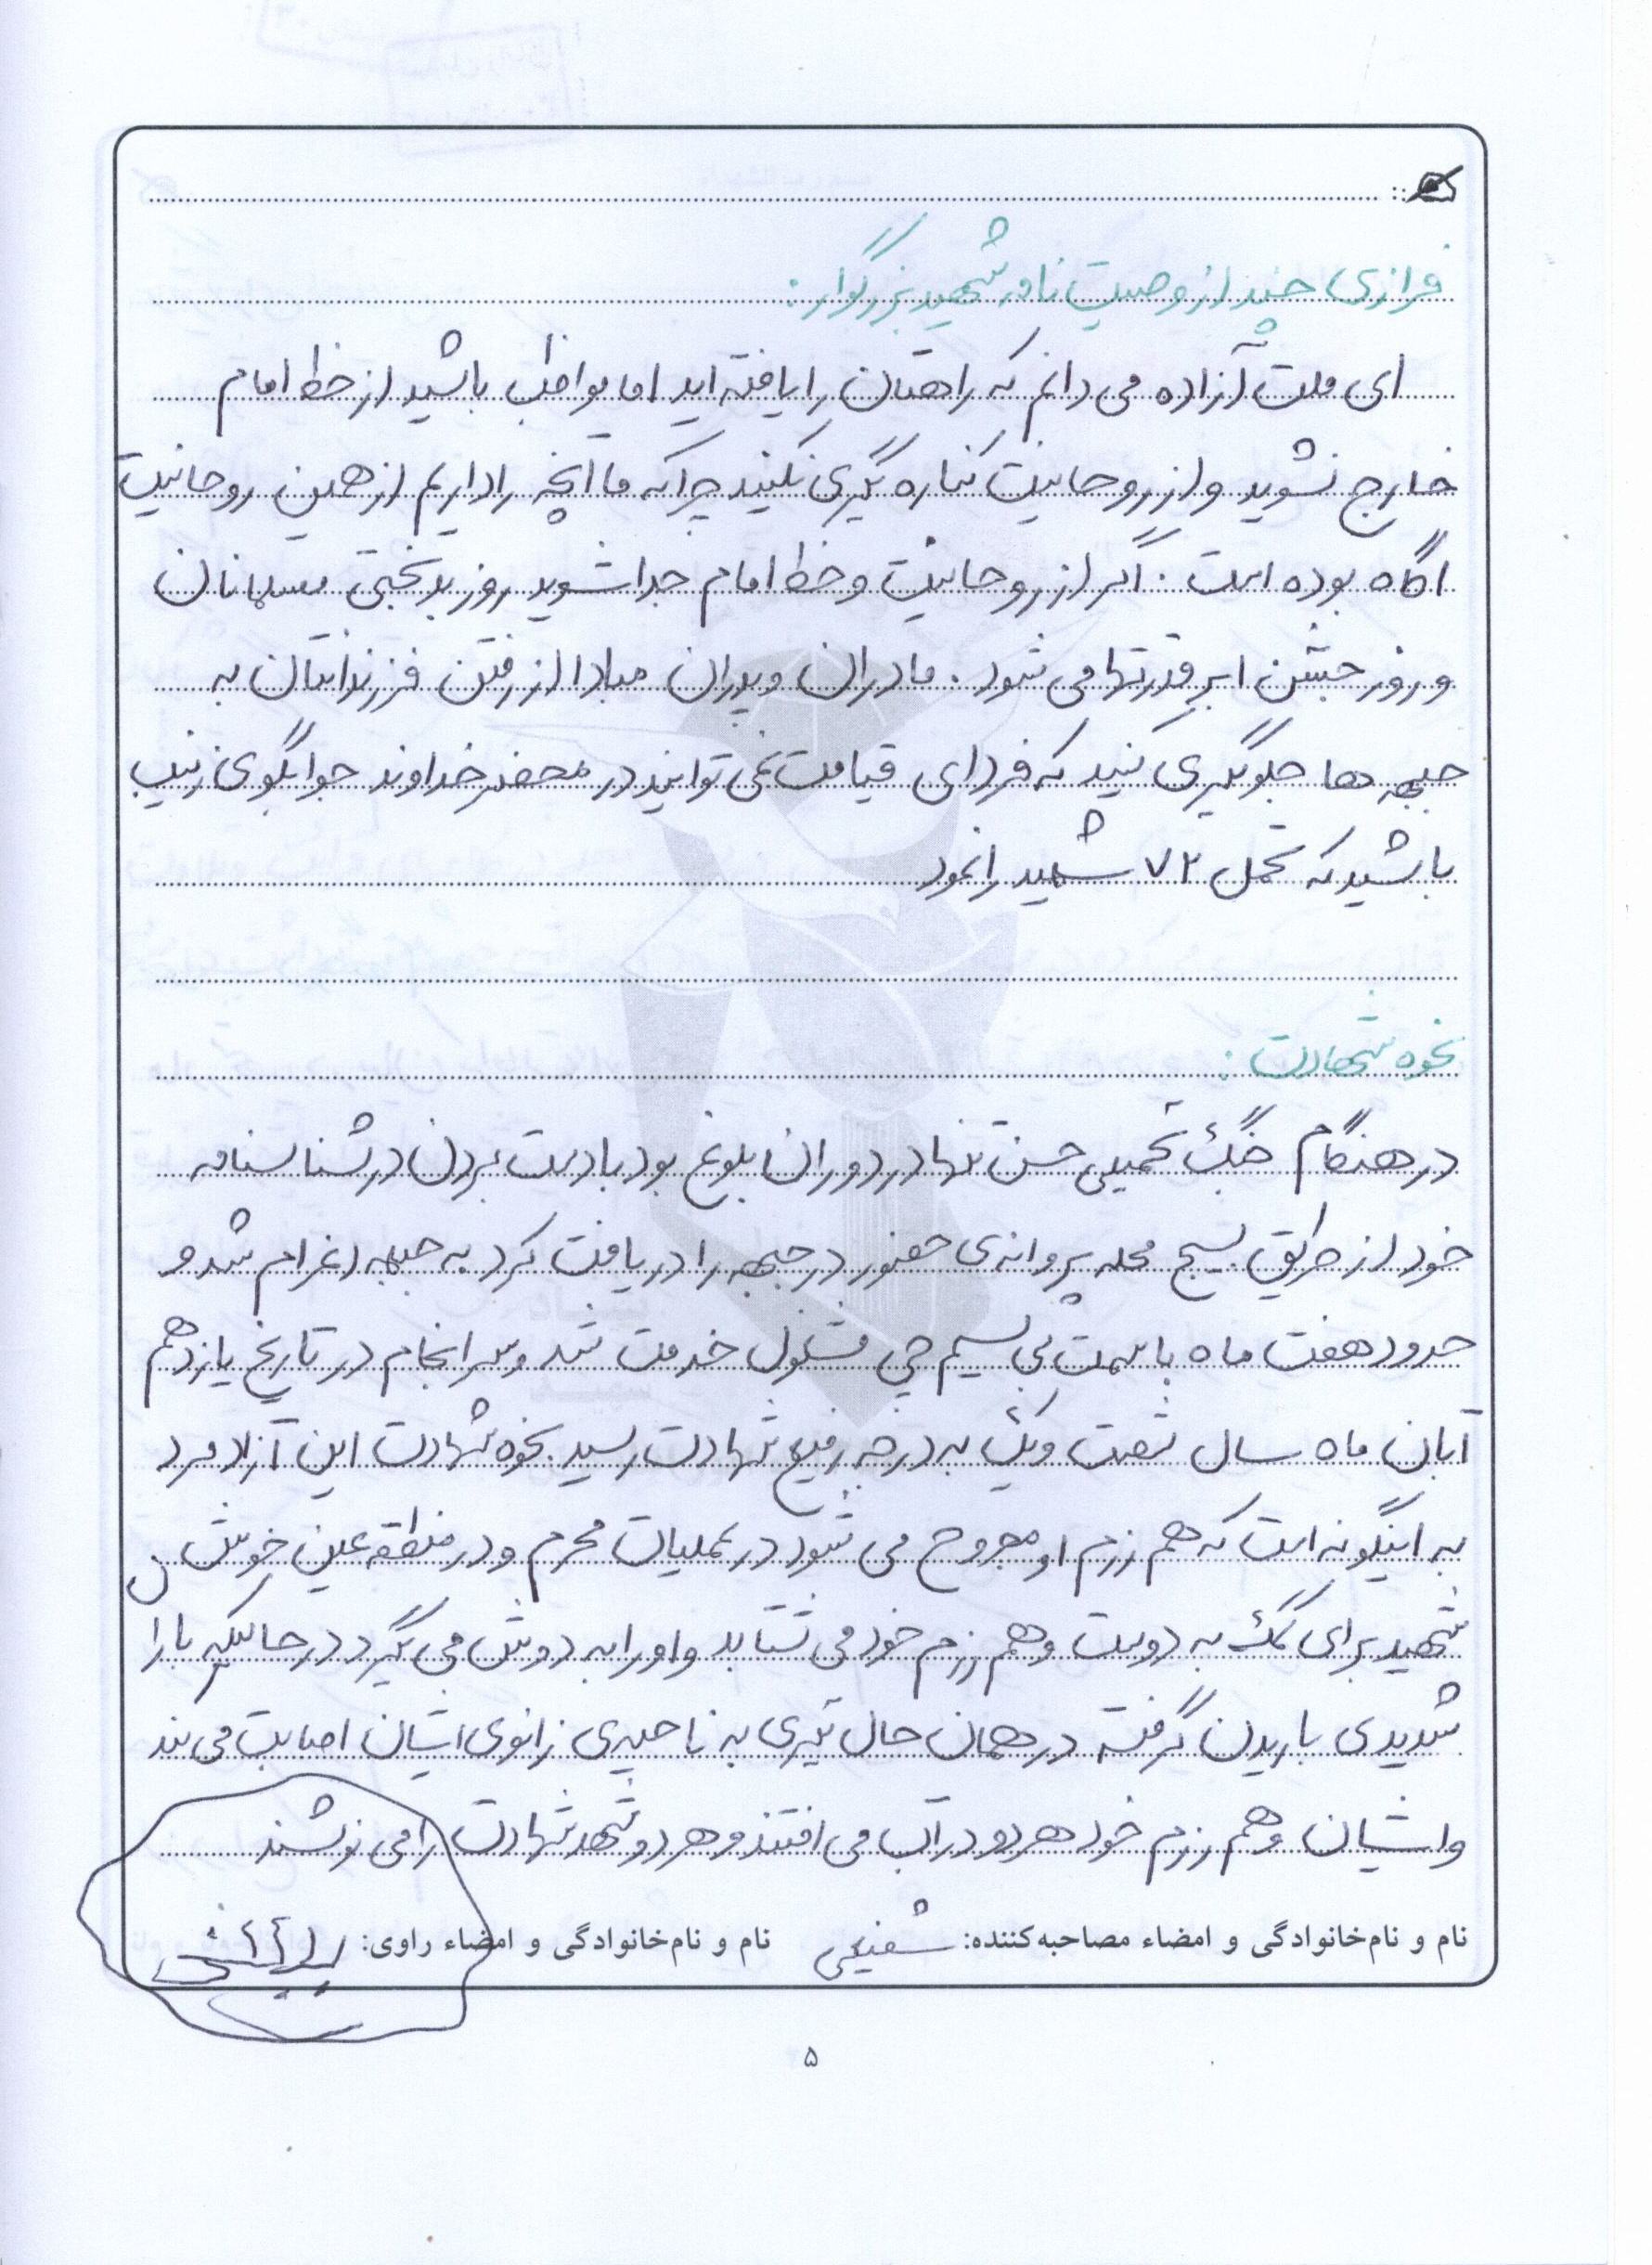 فرازی چند از وصیت نامه شهید بزرگوار:
ای ملت آزاده می دانم که راهتان را یافته اید اما مواظب باشید از خط امام
خارج نشوید و از روحانیت کناره گیری نکنید چرا که ما آنچه را داریم از همین روحانیت
اگاه بوده است. اگر از روحانیت و خط امام جدا شوید روز بدبختی مسلمانان
و روز جشن ابرقدرتها می شود. مادران و پدران مبادا از رفتن فرزندانتان به
جبهه ها جلوگیری کنید که فردای قیامت نمی توانید در محضر خداوند جوابگوی زینب
باشید که تحمل ۷۲ شهید را نمود
نحوه شهادت:
در هنگام جنگ تحمیلی حسن تنها در دوران بلوغ بود با دست بردن در شناسنامه
خود از طریق بسیج محله پروانه‌ی حضور در جبهه را دریافت کرد به جبهه اعزام شد و
حدود هفت ماه با سمت بی سیم چی مشغول خدمت شد و سرانجام در تاریخ یازدهم
آبان ماه سال شصت و یک به درجه رفیع شهادت رسید. نحوه شهادت این آزاد مرد
به اینگونه است که هم رزم او مجروح می شود در عملیات محرم و در منطقه عین خوش
شهید برای کمک به دوست و هم رزم خود می شتابد و او را به دوش می گیرد در حالیکه بارا
شدیدی باریدن گرفته در همان حال تیری به ناحیه‌ی زانوی ایشان اصابت می کند
و ایشان و هم رزم خود هر دو در آب می افتند و هر دو شهد شهادت را می نوشند
نام و نام‌خانوادگی و امضاء مصاحبه‌کننده: شفیعی نام و نام‌خانوادگی و امضاء راوی:
۵